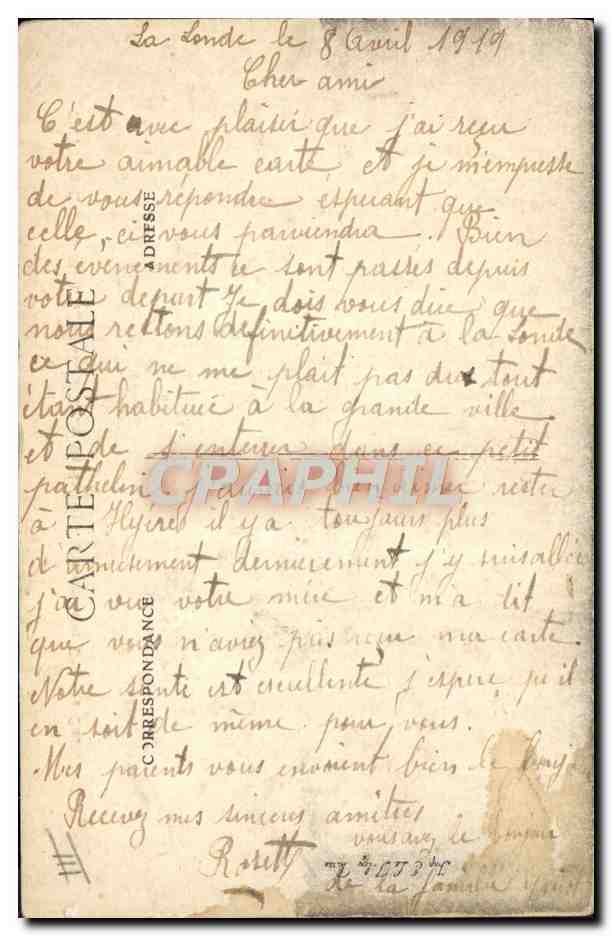 La Londe le 8 Avril 1919
Cher ami
C'est avec plaisir que j'ai reçu
votre aimable carte et je m'empresse
de vous répondre esperant que
celle, ci vous parviendra. Bien
des evenements ce sont passés depuis
votre depart Je dois vous dire que
nous restons definitivement à la Londe
ce qui ne me plait pas du tout
étant habituée à la grande ville
et de s'enterrer dans ce petit
pathelin j'aimerais rester
à Hyères il y a toujours plus
d'amusement dernièrement j'y suis allée
j'ai vu votre mère et m'a dit
que vous n'aviez pas reçu ma carte.
Notre santé est excellente j'espère qu'il
en soit de même pour vous.
Mes parents vous envoient bien le bonjour
Recevez mes sincères amitiés
vous avez le bonjour
Rosette
de la famille
CARTE POSTALE
CORRESPONDANCE
ADRESSE
CPAPHIL